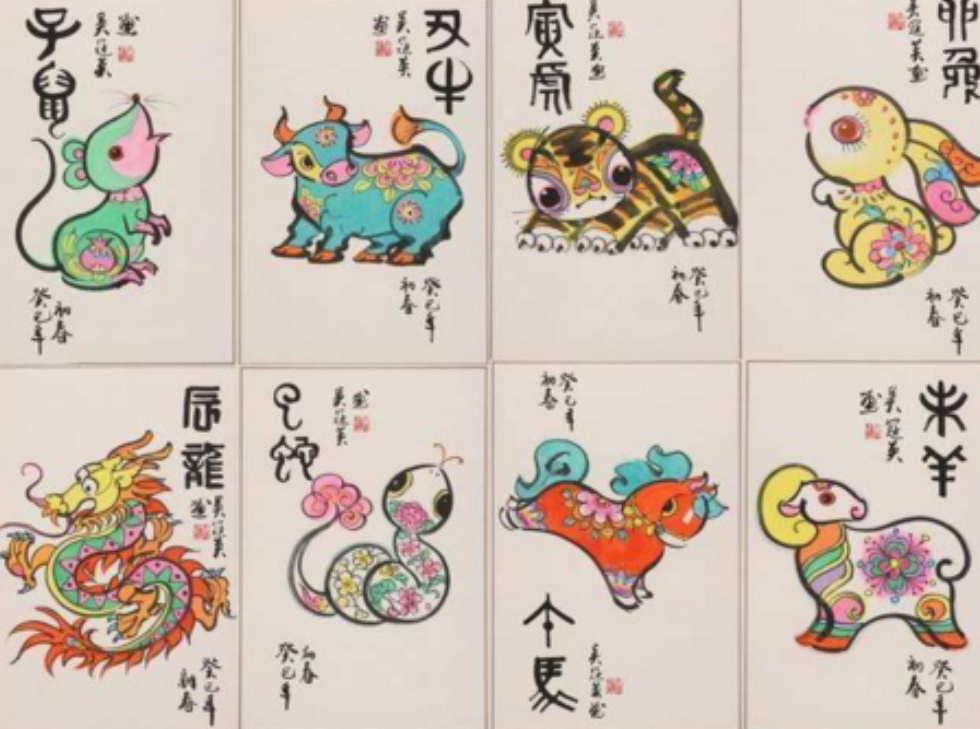 子鼠
吴冠英
画
癸巳年
初春
丑牛
吴冠英
画
癸巳年
初春
寅虎
吴冠英画
癸巳年
初春
卯兔
吴冠英画
癸巳年
初春
辰龍
吴冠英
画
癸巳年
初春
巳蛇
吴冠英
画
癸巳年
初春
癸巳年
初春
午馬
吴冠英画
未羊
吴冠英
画
癸巳年
初春